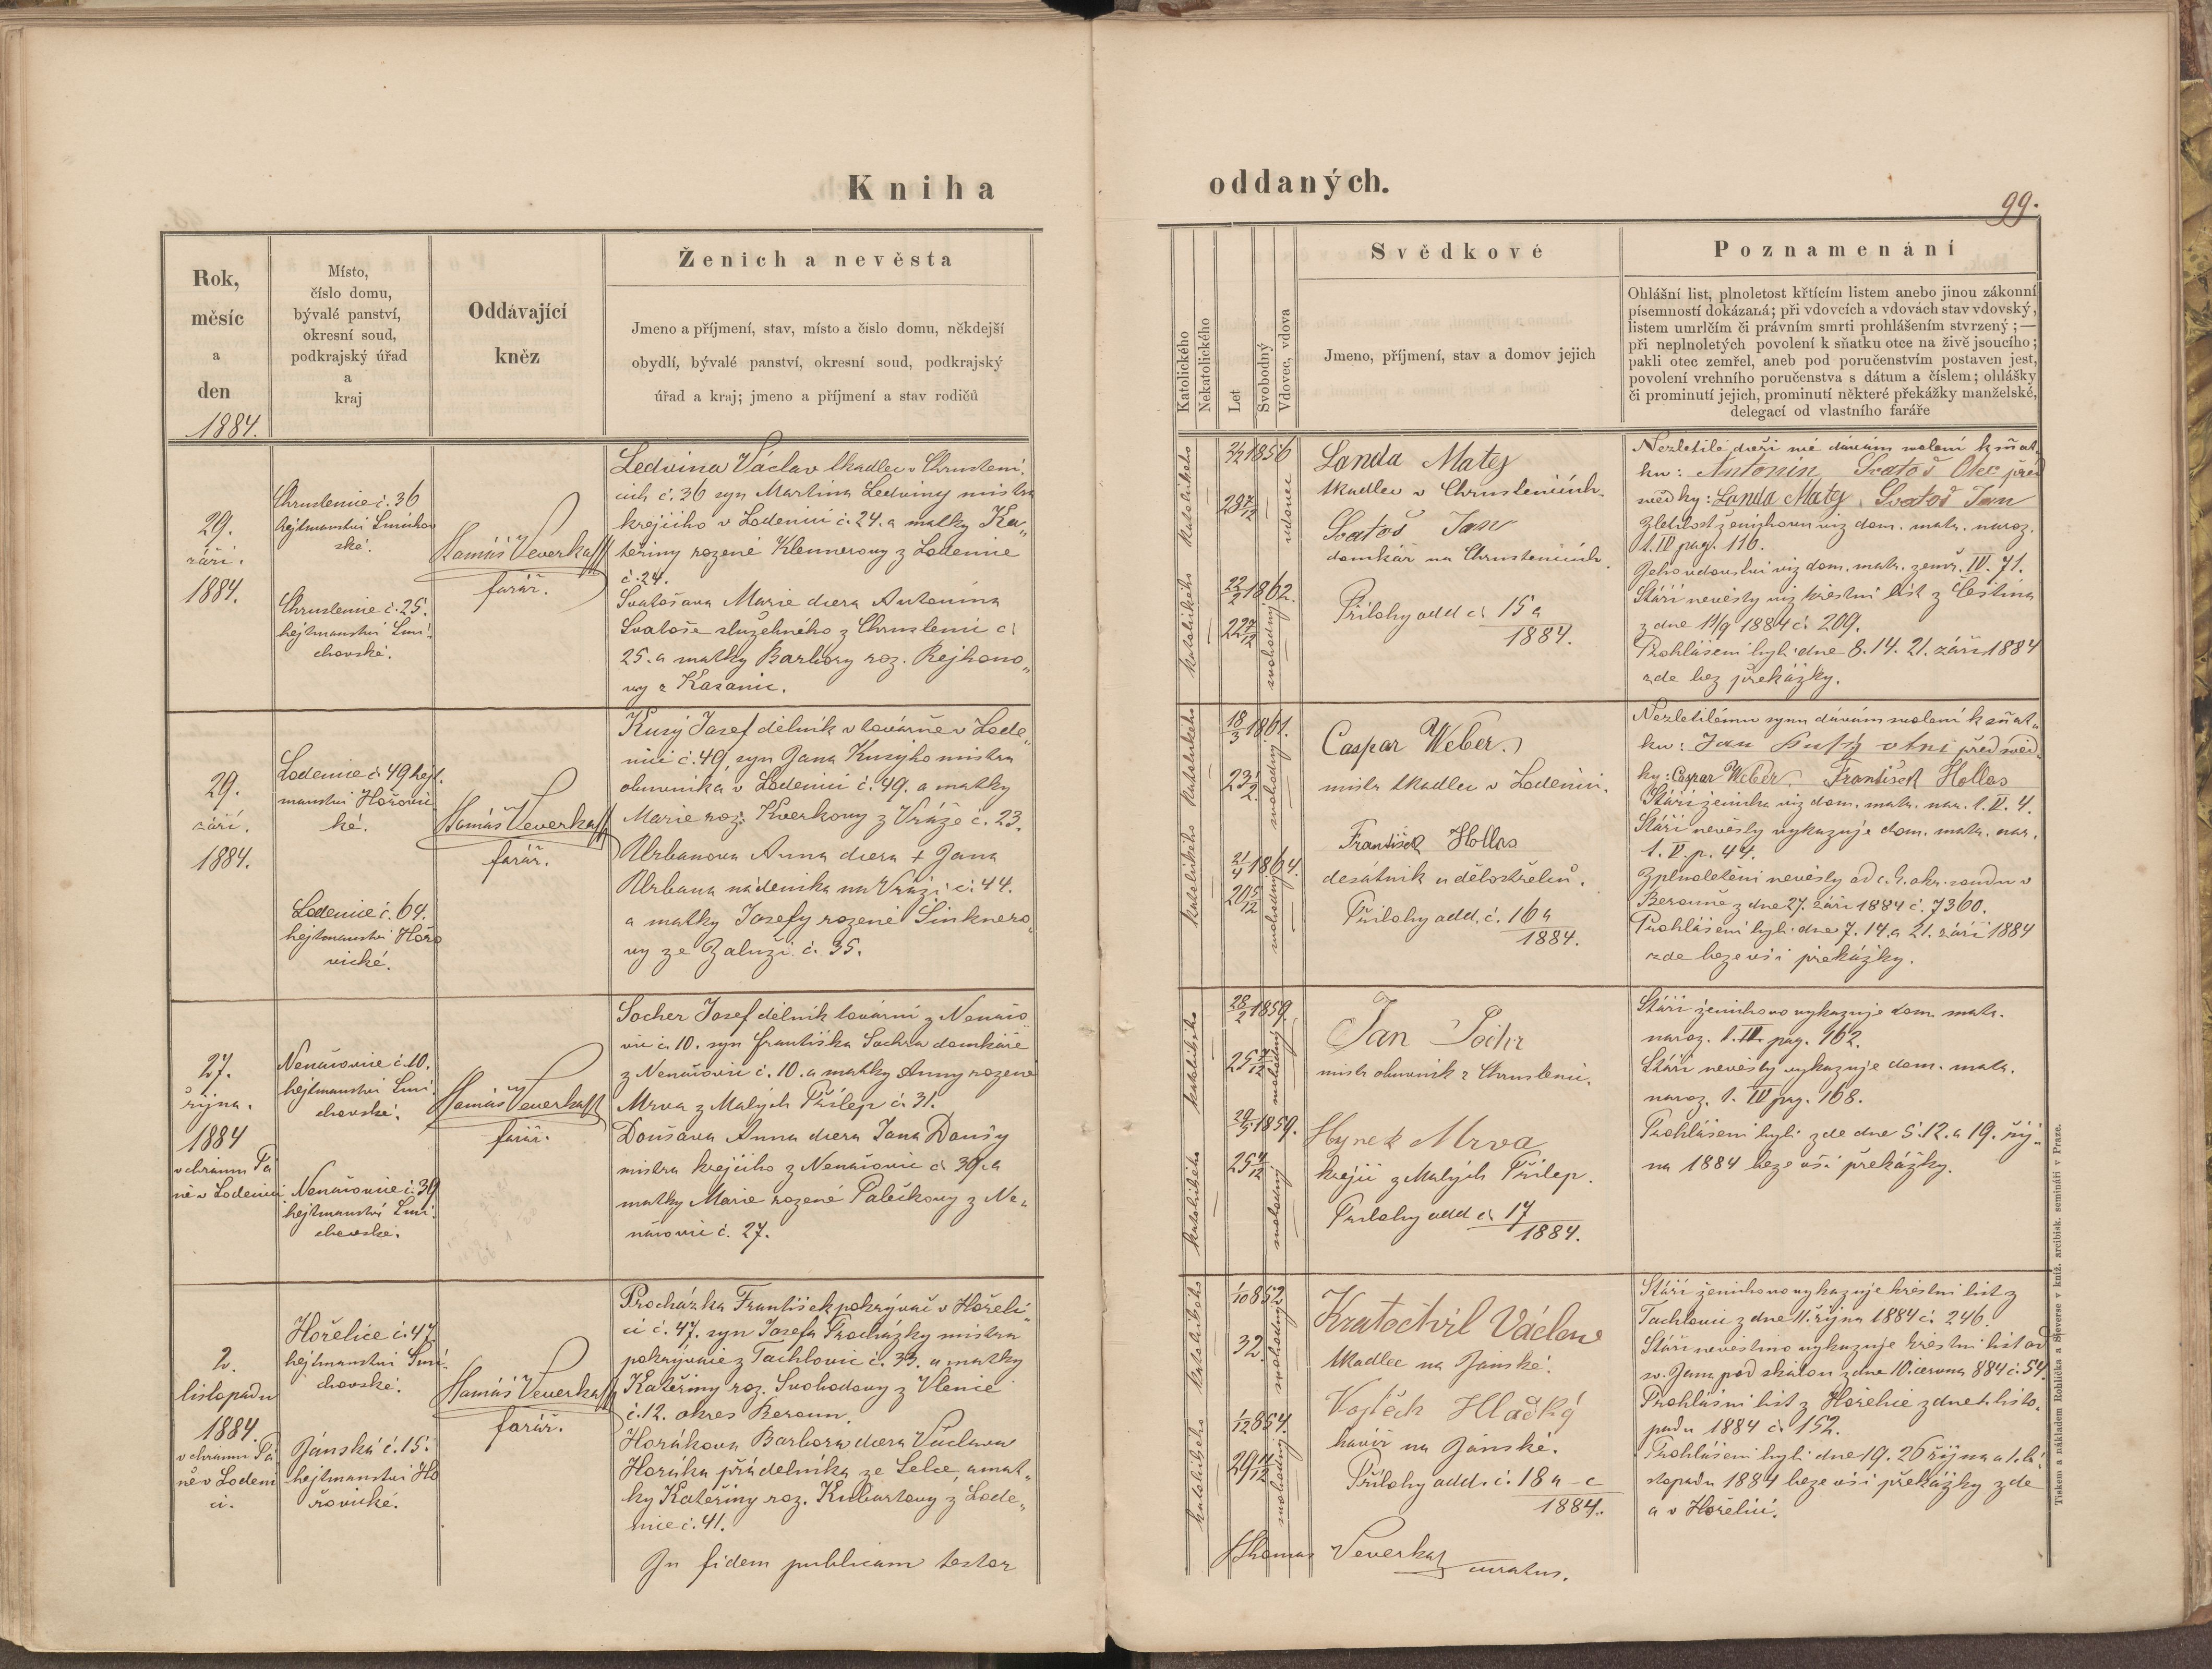 Kniha
oddaných.
99.
Rok,
měsíc
a
den
1884.
Místo,
číslo domu,
bývalé panství,
okresní soud,
podkrajský úřad
a
kraj
Oddávající
kněz
Ženich a nevěsta
Jmeno a příjmení, stav, místo a číslo domu, někdejší
obydlí, bývalé panství, okresní soud, podkrajský
úřad a kraj; jmeno a příjmení a stav rodičů
Katolického
Nekatolického
Let
Svobodný
Vdovec, vdova
Svědkové
Jmeno, příjmení, stav a domov jejich
Poznamenání
Ohlášní list, plnoletost křtícím listem anebo jinou zákonní
písemností dokázaná; při vdovcích a vdovách stav vdovský,
listem umrlčím či právním smrti prohlášením stvrzený; —
při neplnoletých povolení k sňatku otce na živě jsoucího;
pakli otec zemřel, aneb pod poručenstvím postaven jest,
povolení vrchního poručenstva s dátum a číslem; ohlášky
či prominutí jejich, prominutí některé překážky manželské,
delegací od vlastního faráře
29.
září.
1884.
Chrustenice č. 36
hejtmanství Smíchov
ské.
Chrustenice č. 25.
hejtmanství Smí
chovské.
Tomáš Veverka
farář.
Ledvina Václav tkadlec v Chrusteni,
cích č. 36 syn Martina Ledviny mistra
krejčího v Lodenici č. 24. a matky Ka„
teřiny rozené Klennerovy z Lodenice
č. 24.
Svatošova Marie dcera Antonína
Svatoše služebného z Chrustenic č.
25. a matky Barbory roz. Rejhono„
vy z
katolického katolického
1856
28 7/12
vdovec
22/2 1862.
22 7/12
svobodný
Landa Matej
tkadlec v Chrustenicích.
Svatoš Jan
domkář na Chrustenicích.
Přílohy add č. 15a
1884.
Nezletilé dceři mé dávám svolení k sňat„
ku: Antonín Svatoš Otec před
svědky: Landa Matej Svatoš Jan
Zletilost ženichovu viz dom. matr. naroz.
t. IV pag. 116.
Jeho vdovství viz dom. matr. zemř. IV. 71.
Stáří nevěsty viz křestní list z
z dne 11/9 1884 č. 209.
Prohlášeni byli dne 8. 14. 21. září 1884
zde bez překážky.
29.
září.
1884.
Lodenice č. 49 hejt.
manství Hořovic
ké.
Lodenice č. 64.
hejtmanství Hořo
vické.
Tomáš Veverka
farář.
Kusý Josef dělník v továrně v Lode„
nici č. 49, syn Jana Kusýho mistra
obuvníka v Lodenici č. 49. a matky
Marie roz. Kverkovy z Vráže č. 23.
Urbanova Anna dcera + Jana
Urbana nádeníka na Vráži č. 44.
a matky Josefy rozené Šinknero„
vy ze Zaluží č. 35.
katolického katolického
18/3 1861.
svobodný
21/4 1864.
20 5/12
svobodný
Caspar Weber.
mistr tkadlec v Lodenici.
František Hollas
desátník u dělostřelců.
Přílohy add. č. 16a
1884.
Nezletilému synu dávám svolení k sňat„
ku: Jan Kusý otni před svěd
ky: Caspar Weber. František Hollas
Stáří ženicha viz dom. matr. nar. t. V. 4.
Stáří nevěsty vykazuje dom. matr. nar.
t. V. p. 44.
Zplnoletění nevěsty od c. k. okr. soudu v
Berouně z dne 27. září 1884 č. 7360.
Prohlášeni byli dne 7. 14. a 21. září 1884
zde beze vší překážky.
27.
října.
1884
v chrámu Pá
ně v Lodenici
Nenačovice č. 10.
hejtmanství Smí
chovské.
Nenačovice č. 39
hejtmanství Smí
chovské.
Tomáš Veverka
farář.
Socher Josef dělník tovární z Nenačo
vic č. 10. syn Františka Sochra domkáře
z Nenačovic č. 10. a matky Anny rozené
Mrva z Malých Přílep č. 31.
Doušova Anna dcera Jana Doušy
mistra krejčího z Nenačovic č. 39. a
matky Marie rozené Palečkovy z Ne„
načovic č. 27.
katolického katolického
28/2 1859.
25 7/12
svobodný
29/5 1859.
25 4/12
svobodný
Jan Sochr
mistr obuvník z Chrustenic.
Hynek Mrva
krejčí z Malých Přílep.
Přílohy add č. 17
1884.
Stáří ženichovo vykazuje dom. matr.
naroz. t. IV. pag. 162.
Stáří nevěsty vykazuje dom. matr.
naroz. t. IV pag. 168.
Prohlášeni byli zde dne 5. 12. a 19. říj„
na 1884 beze vší překážky.
2.
listopadu
1884.
v chrámu Pá
ně v Lodeni
ci.
Hořelice č. 47
hejtmanství Smí
chovské.
Jánská č. 15.
hejtmanství Ho
řovické.
Tomáš Veverka
farář.
Procházka František pokrývač v Hořeli
ci č. 47. syn Josefa Procházky mistra
pokrývače z Tachlovic č. 33. a matky
Kateřiny roz. Svobodovy z Vlenic
č. 12. okres Beroun.
Horákova Barbora dcera Václava
Horáka přádelníka ze Selce, a mat„
ky Kateřiny roz. Kubartovy z Lode„
nice č. 41.
In fidem publicam testor
katolického katolického
1/10 852.
32.
svobodný
1/12 854.
29 11/12
svobodný
Kratochvíl Václav
tkadlec na Jánské.
Vojtěch Hladký
havíř na Jánské.
Přílohy add. č. 18 a–c
1884.
Thomas Veverka
curatus.
Stáří ženichovo vykazuje křestní list z
Tachlovic z dne 11. října 1884 č. 246.
Stáří nevěstino vykazuje křestní list od
sv. Jana pod skalou z dne 10. června 884 č. 54.
Prohlášní list z Hořelic z dne 1. listo„
padu 1884 č. 152.
Prohlášeni byli dne 19. 26 října a 1. li
stopadu 1884 beze vší překážky zde
a v Hořelici.
Tiskem a nákladem Rohlíčka a Sieverse v kníž. arcibisk. semináři v Praze.